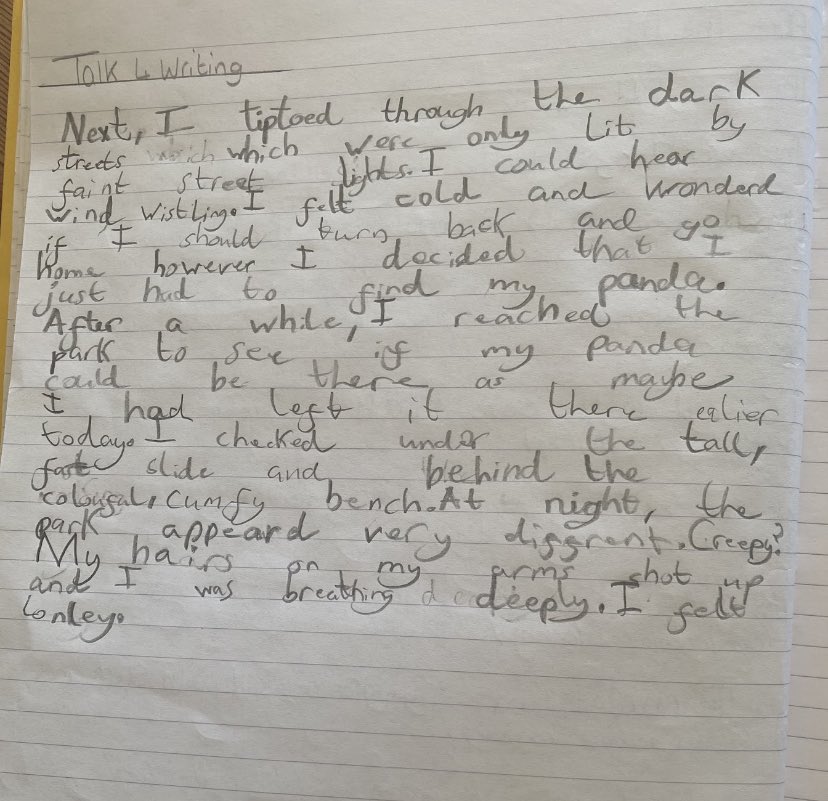 Talk 4 Writing
Next, I tiptoed through the dark
streets which which were only lit by
faint street lights. I could hear
wind wistling. I felt cold and wonderd
if I should turn back and go
home however I decided that I
just had to find my panda.
After a while, I reached the
park to see if my panda
could be there as maybe
I had left it there ealier
today. I checked under the tall,
fast slide and behind the
colougal, cumfy bench. At night, the
park appeard very diffrent. Creepy?
My hairs on my arms shot up
and I was breathing deeply. I felt
lonley.